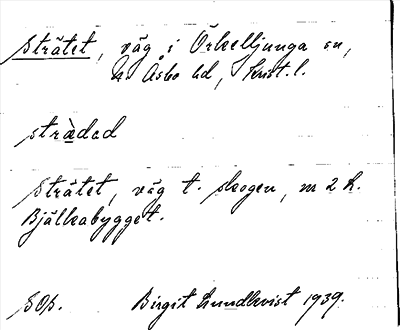 Strätet, väg i Örkelljunga sn,
N. Åsbo hd, Krist. l.
stràdad
Strätet, väg t. skogen, m 2 h.
Bjälkabygget.
SOp. Birgit Lundkvist 1939.